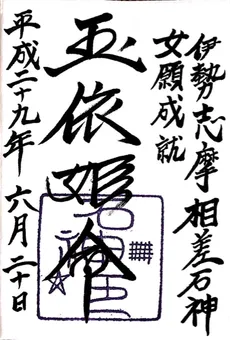 伊勢志摩相差石神
女願成就
玉依姫命
石神
平成二十九年六月二十日